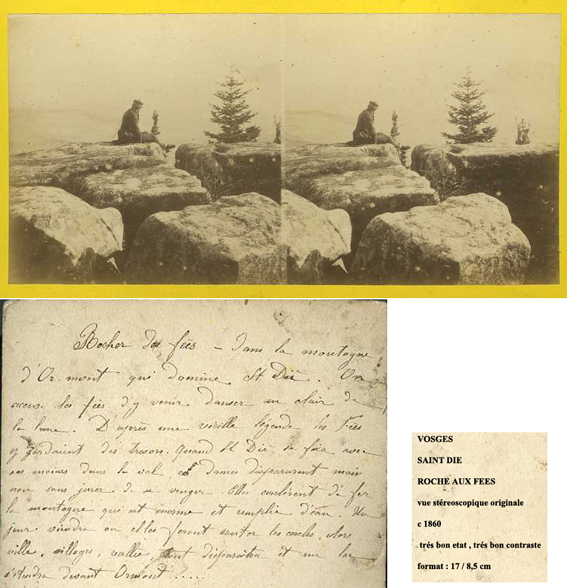 Rocher des fées – Dans la montagne
d'Or-mont qui domine St Dié. On
accuse les fées d'y venir danser au clair de
la lune. D'après une vieille légende les Fées
y gardaient des tresors. Quand St Dié se fixa avec
ses moines dans le val, ces dames disparurent mais
non sans jurer de se venger. Elles
la montagne qui est énorme et remplie d'eau. Un
jour viendra ou elles feront sauter les cercles, alors
ville, villages, vallée, tout disparaitra et un lac
s'étendra devant Ormont ....
VOSGES
SAINT DIE
ROCHE AUX FEES
vue stéreoscopique originale
c 1860
trés bon etat , trés bon contraste
format : 17 / 8,5 cm